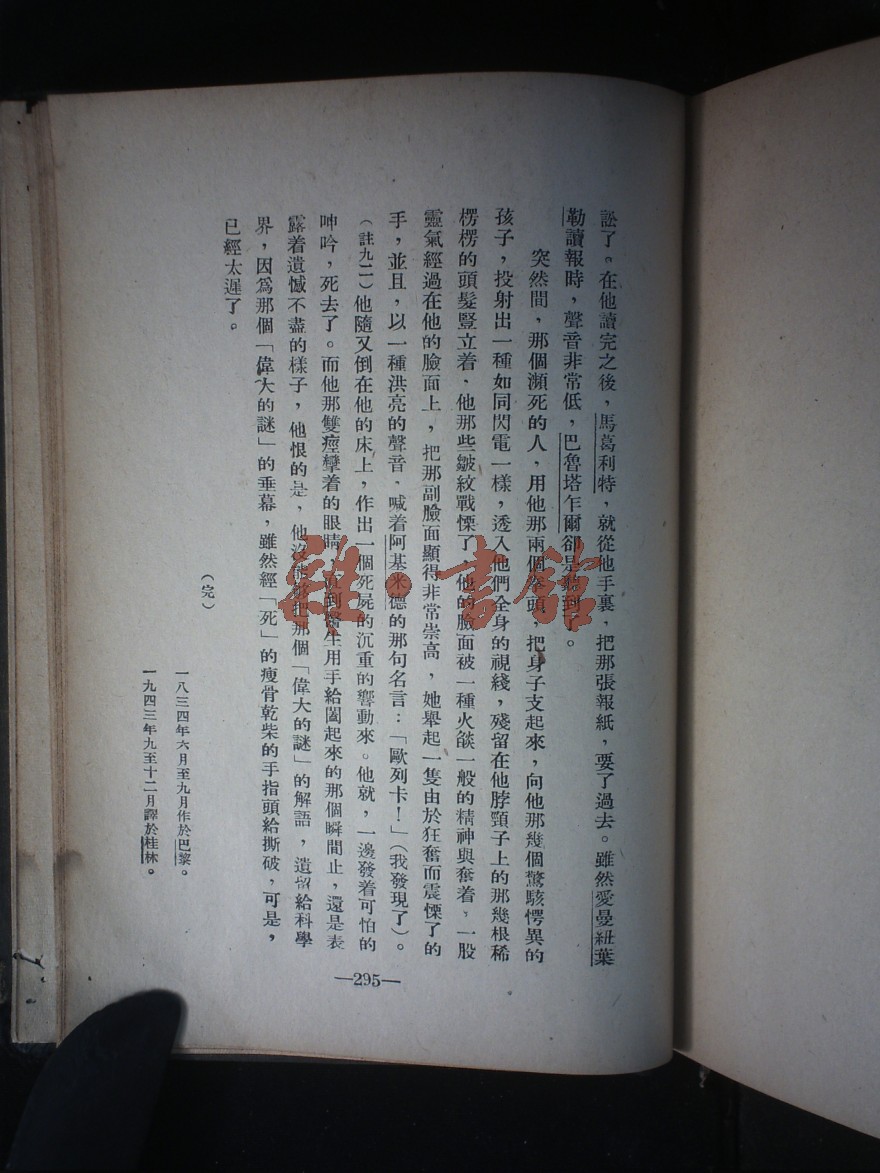 訟了。在他讀完之後，馬葛利特，就從他手裏，把那張報紙，要了過去。雖然愛曼紐葉
勒讀報時，聲音非常低，巴魯塔乍爾卻是聽到了。
突然間，那個瀕死的人，用他那兩個拳頭，把身子支起來，向他那幾個驚駭愕異的
孩子，投射出一種如同閃電一樣，透入他們全身的視綫，殘留在他脖頸子上的那幾根稀
楞楞的頭髮豎立着，他那些皺紋戰慄了，他的臉面被一種火燄一般的精神與奮着，一股
靈氣經過在他的臉面上，把那副臉面顯得非常崇高，她舉起一隻由於狂奮而震慄了的
手，並且，以一種洪亮的聲音，喊着阿基米德的那句名言：「歐列卡！」（我發現了）。
（註九二）他隨又倒在他的床上，作出一個死屍的沉重的響動來。他就，一邊發着可怕的
呻吟，死去了。而他那雙痙攣着的眼睛，直到醫生用手給闔起來的那個瞬間止，還是表
露着遺憾不盡的樣子，他恨的是，他沒能夠把那個「偉大的謎」的解語，遺留給科學
界，因爲那個「偉大的謎」的垂幕，雖然經「死」的瘦骨乾柴的手指頭給撕破，可是，
已經太遲了。
（完）
一八三四年六月至九月作於巴黎。
一九四三年九至十二月譯於桂林。
—295—
雜·書館